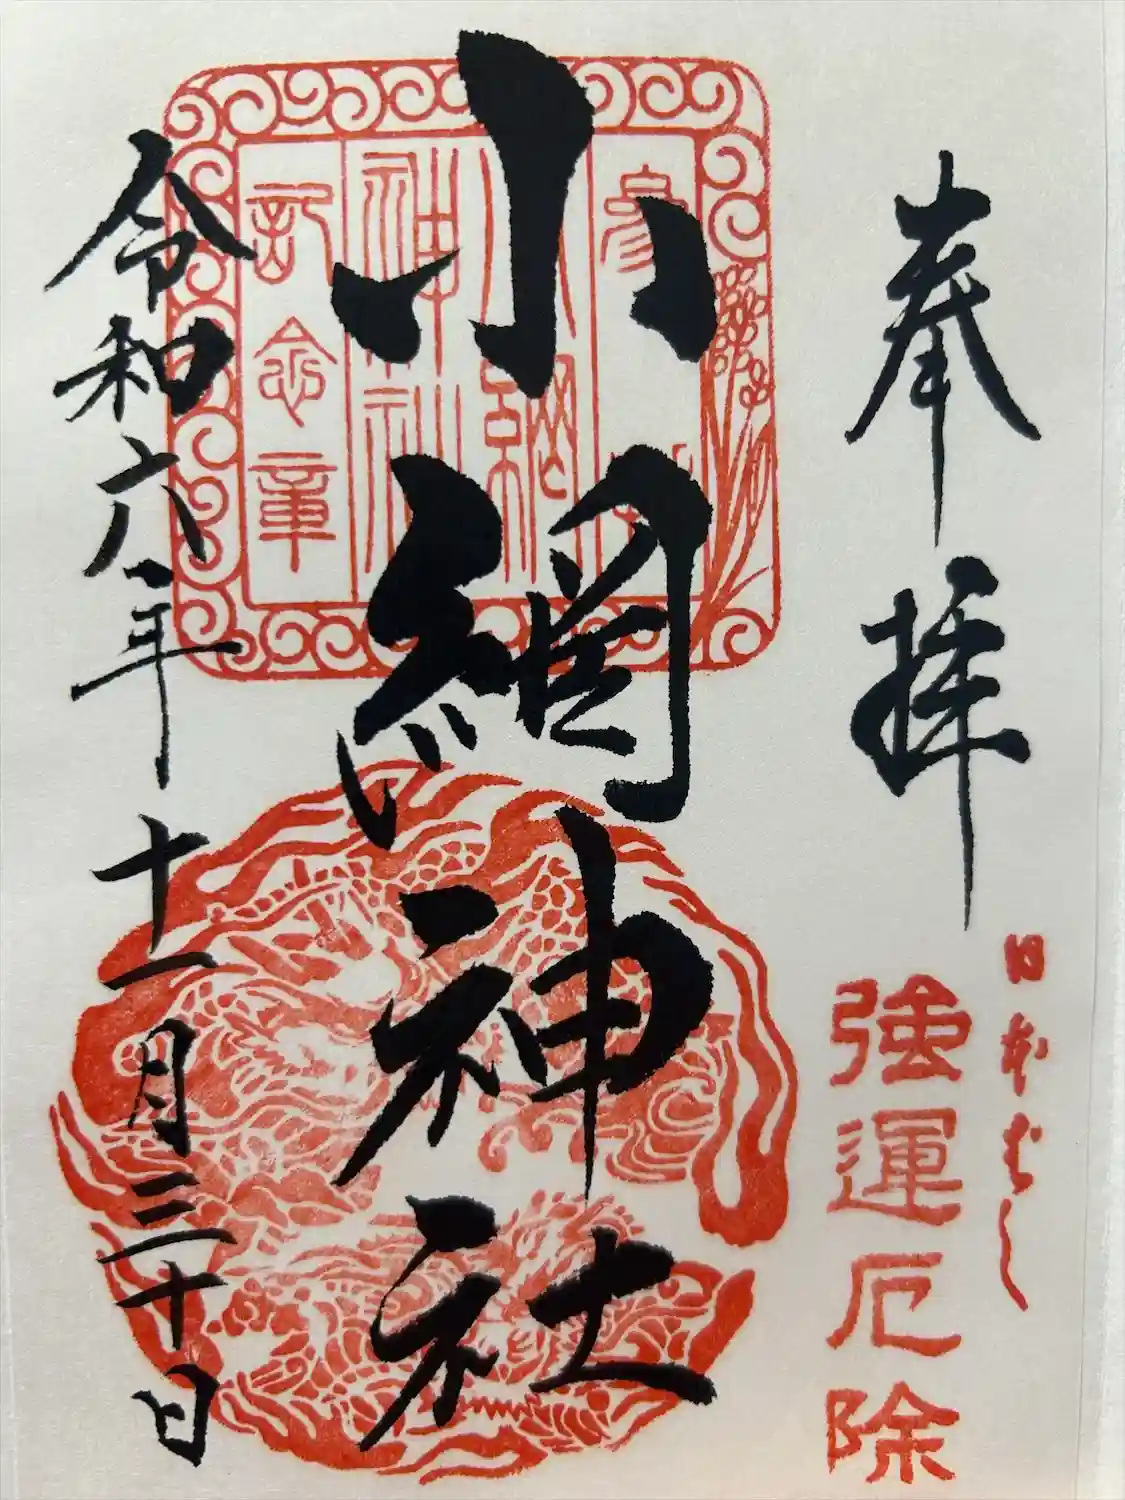 奉拝
日本ばし
強運厄除
小網神社
令和六年十一月三十日
小網
神社
記念章